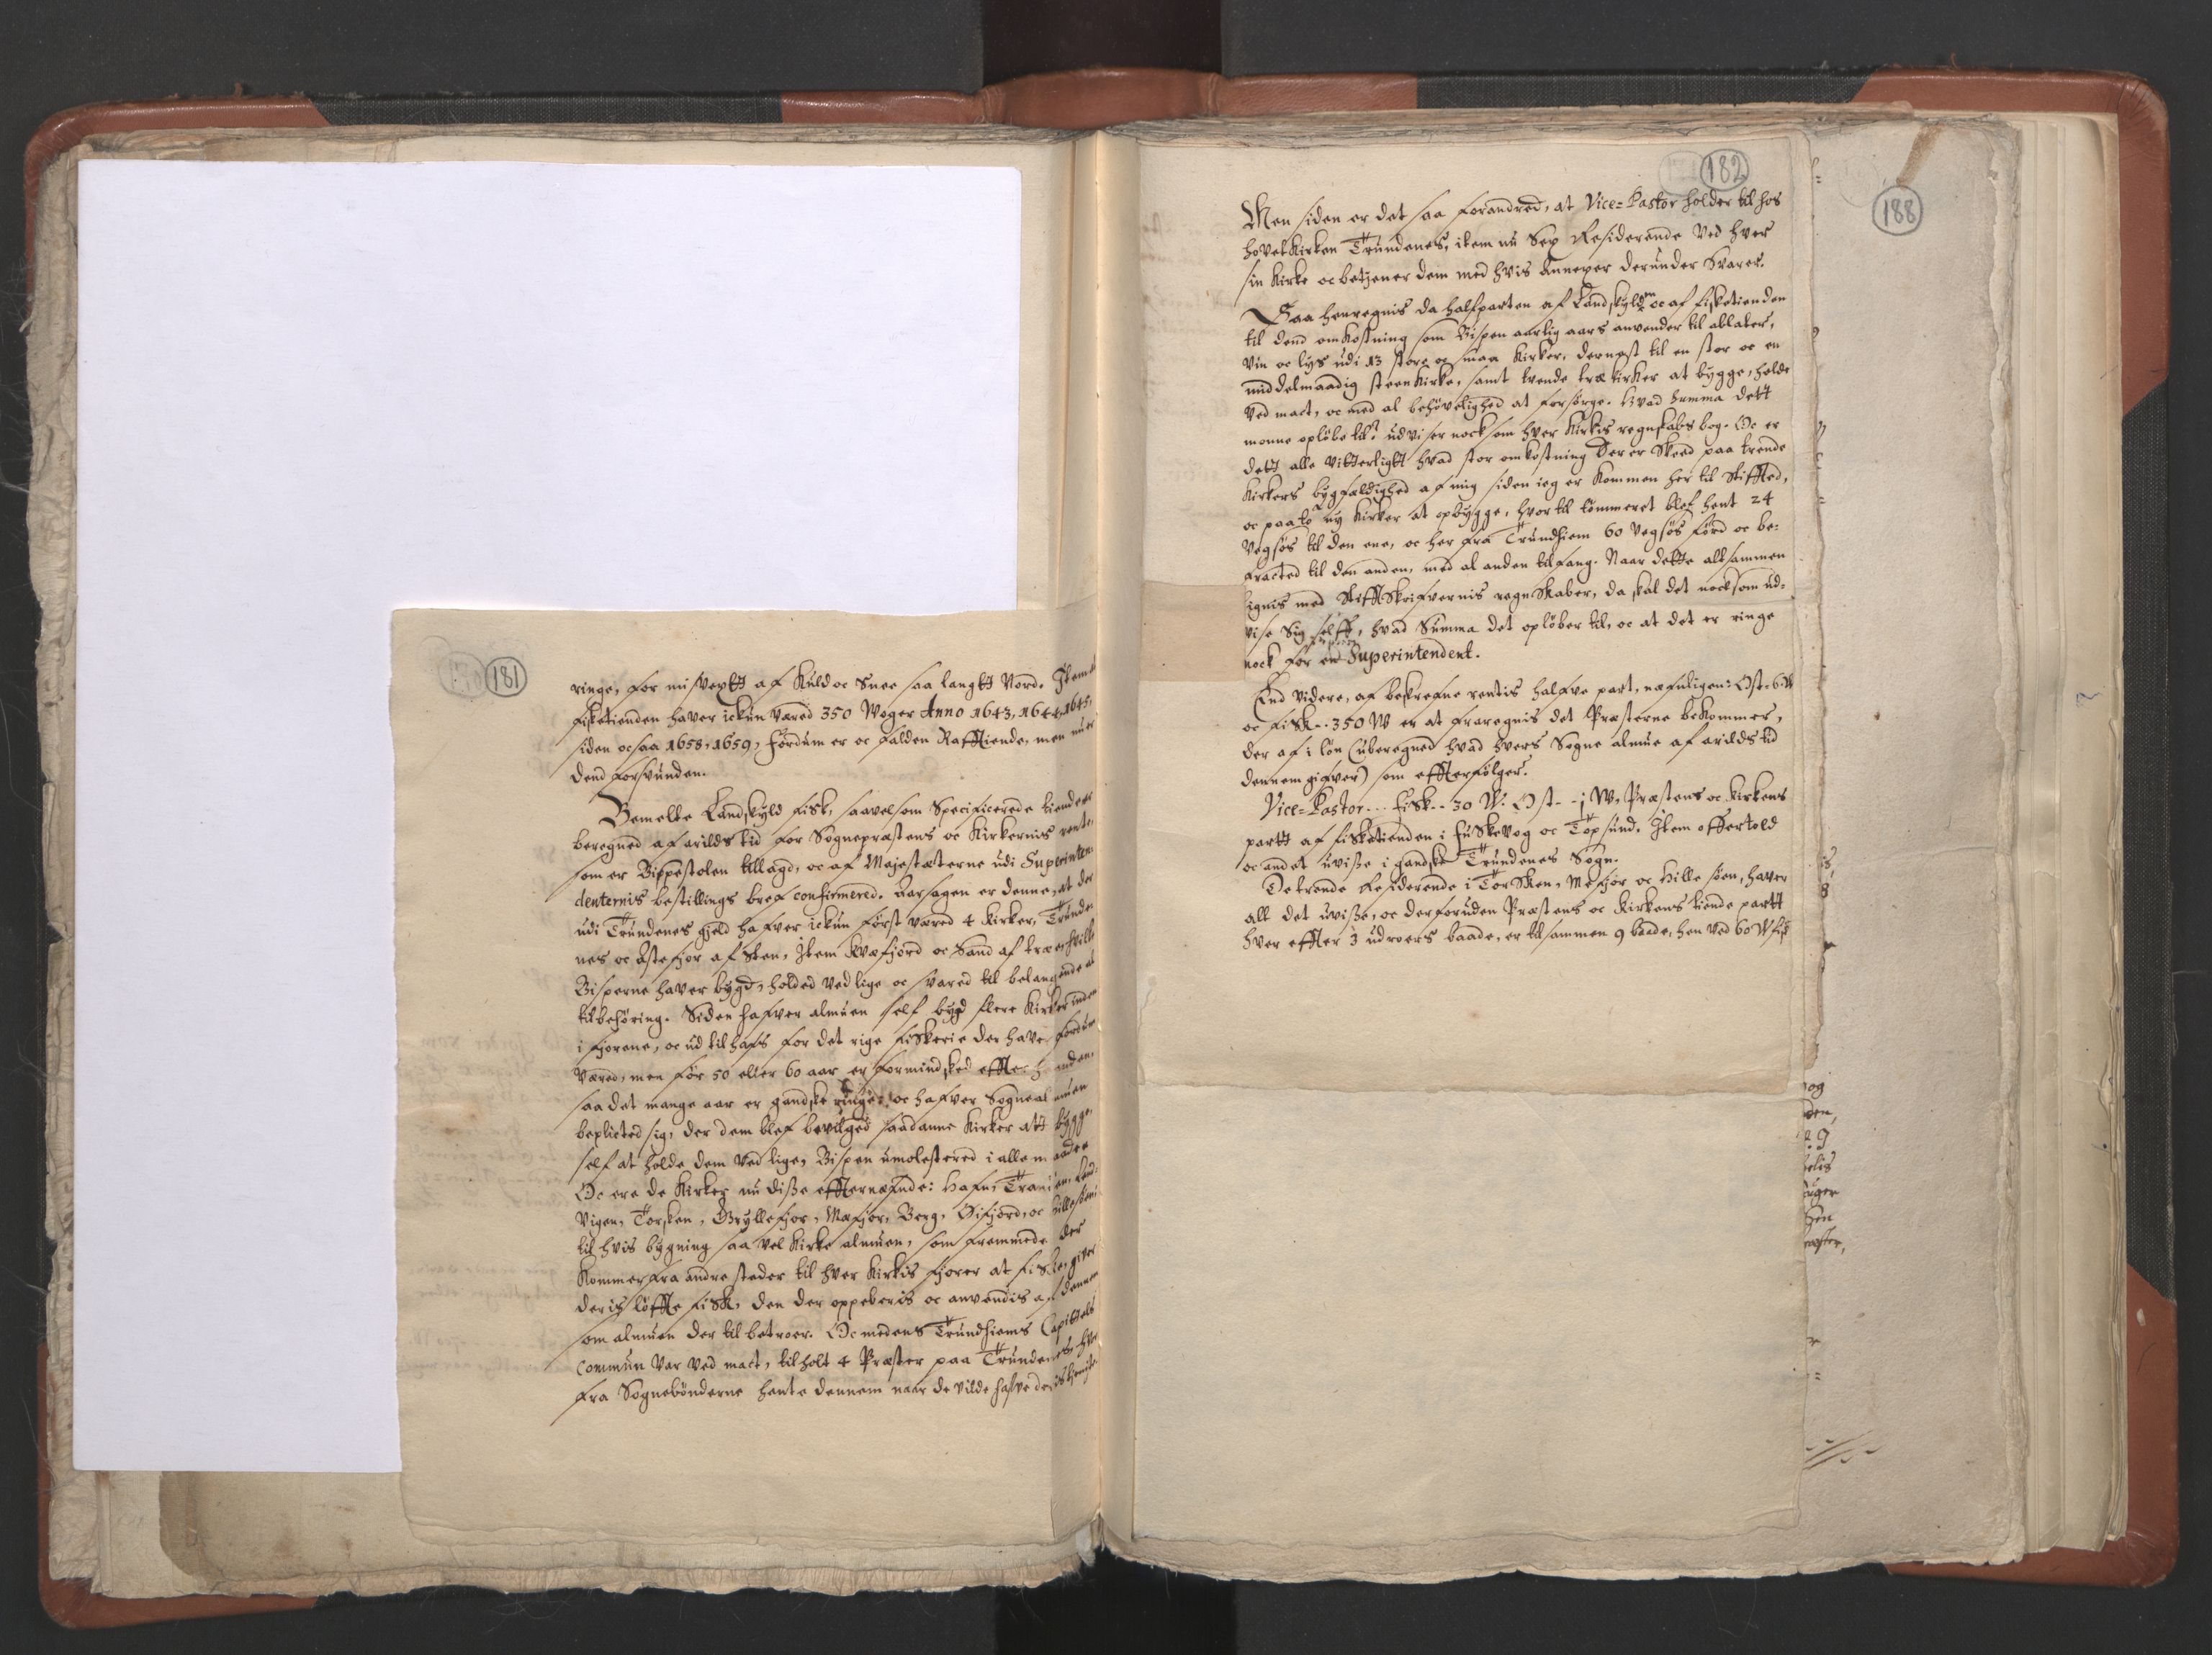 181
ringe, for misvextt af Kuld oc Snee saa langtt Nord. Item
fisketienden haver ickun væred 350 Woger Anno 1643, 1644, 1645,
siden ocsaa 1658, 1659, fordum er oc falden Rafftiende, men nu er
dend forsvunden.
Bemelte Landskyld fisk, saavelsom Specificerede tiende er
beregned af arilds tid for Sognepræstens oc Kirkernis rente,
som er Bispestolen tillagd, oc af Majestæterne udi Superinten-
denternis bestillings bref confirmered. Aarsagen er denne, at der
udi Trundenes gjeld hafver ickun først væred 4 Kirker, Trunde
nes oc Astefjor af Sten, Item Kvæfjord oc Sand af træ, hville
Bisperne haver bygd, holded ved lige oc svared til belangende al
tilbehøring. Siden hafver almuen self bygd flere Kirker inden
i fjorene, oc ud til hafs for det rige fiskerie der haver fordum
væred, men for 50 eller 60 aar er formindsked effter haanden,
saa det mange aar er gandske ringe: oc hafver Sognealmuen
beplicted sig, der dem blef bevilged saadanne Kirker att bygge,
self at holde dem ved lige, Bispen umolestered i alle maader
Oc ere de Kirker nu disse effternæfnde: Hafn, Tranøen,
Vigen, Torsken, Gryllefjor, Mefjor, Berg, Øifjord, oc Hillesøen:
til hvis bygning saa vel Kirke almuen, som fremmede der
Kommer fra andre steder til hver Kirkis fjorer at fiske, giver
deris løffte fisk, den der oppeberis oc anvendis af dennem
som almuen der til betroer. Oc medens Trundhiems Capittels
Commun var ved mact, tilholt 4 Præster paa Trundenes, hvor
fra Sognebønderne hente dennem naar de vilde hafve deris tieniste.
182
Men siden er det saa forandred, at Vice-Pastor holder til hos
hovetkirken Trundenes, item nu Sex Residerende ved hver
sin Kirke oc betjener dem med hvis Annexer derunder Svarer.
Saa henregnis da halfparten af Landskylden oc af fisketienden
til dend omkostning som Bispen aarlig aars anvender til ablater,
vin oc lys udi 13 store oc smaa Kirker, dernest til en stor oc en
middelmaadig steenkirke, samt trende trækirker at bygge, holde
ved mact, oc med al behøvelighed at forsørge. Hvad Summa dett
monne opløbe til? udviser nocksom hver Kirkis regnskabs bog. Oc er
dett alle vitterligtt hvad stor omkostning der er Skeed paa trende
Kirkers bygfældighed af mig siden ieg er Kommen her til Stifftet,
oc paa to ny Kirker at opbygge, hvortil tømmeret blef hent 24
Vegsøs til den ene, oc her fra Trundhiem 60 Vegsøs førd oc be-
fracted til den anden, med al anden tilfang. Naar dette altsammen
lignis med Stifftskrifvernis regnskaber, da skal det nocksom ud-
vise Sig selff, hvad Summa det opløber til, oc at det er ringe
nock for en Superintendent.
End videre, af beskrefne rentis halfve part, nefnligen: Ost. 6 W
oc fisk.. 350 W er at fraregnis det Præsterne bekommer,
der af i løn (uberegned hvad hvers Sogne almue af arilds tid
dennem gifver) som effterfølger.
Vice-Pastor... fisk.. 30 W. Ost.. j W. Præstens oc Kirkens
partt af fisketienden i Fuskevog oc Topsund. Item offertold
oc andet uvisse i gandske Trundenes Sogn.
De trende Residerende i Torsken, Mefjor oc Hillesøen, haver
all det uvisse, oc derforuden Præstens oc Kirkens tiende partt
hver effter 3 udroers baade, er tilsammen 9 baade, hen ved 60 W fisk
188